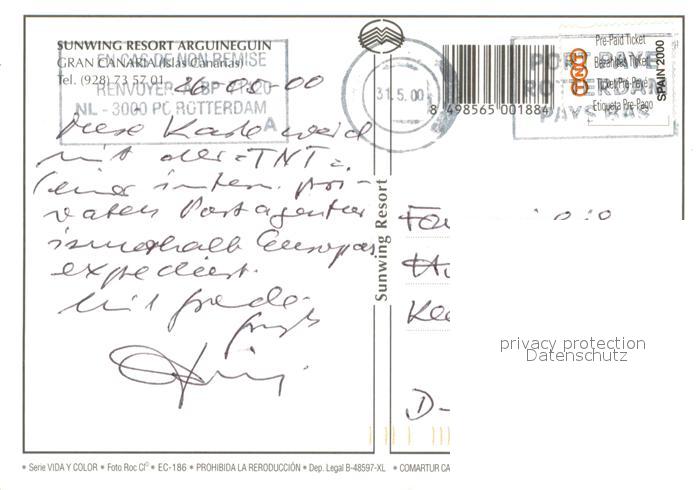 SUNWING RESORT ARGUINEGUIN
GRAN CANARIA (Islas Canarias)
Tel. (928) 73 57 01
EN CAS DE NON REMISE
RENVOYER
NL - 3000 PC ROTTERDAM
A
26-05-00
Diese Karte wird
mit der "TNT"
(einer intern. pri-
vaten Postagentur
innerhalb Europas
expediert.
Mit freda
gruß
Sunwing Resort
31.5.00
8 498565 001884
PORT PAYE
ROTTERDAM
PAYS BAS
TNT
Pre-Paid Ticket
Bezahltes Ticket
Ticket Pré-Payé
Etiqueta Pre-Pago
SPAIN 2000
D-
privacy protection
Datenschutz
• Serie VIDA Y COLOR • Foto Roc Cl° • EC-186 • PROHIBIDA LA RERODUCCIÓN • Dep. Legal B-48597-XL • COMARTUR CA